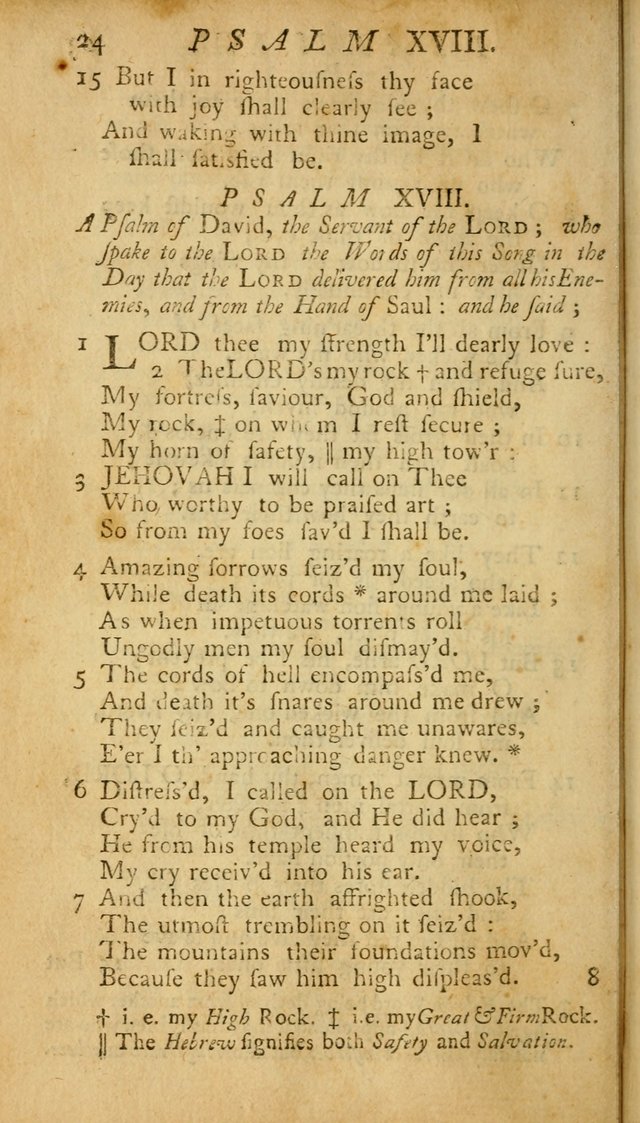 24 PSALM XVIII.
15 But I in righteouſneſs thy face
with joy ſhall clearly ſee ;
And waking with thine image, I
ſhall ſatisfied be.
PSALM XVIII.
A Pſalm of David, the Servant of the LORD ; who
ſpake to the LORD the Words of this Song in the
Day that the LORD delivered him from all his Ene-
mies, and from the Hand of Saul : and he ſaid ;
1 LORD thee my ſtrength I'll dearly love :
2 The LORD's my rock † and refuge ſure,
My fortreſs, ſaviour, God and ſhield,
My rock, ‡ on whom I reſt ſecure ;
My horn of ſafety, || my high tow'r :
3 JEHOVAH I will call on Thee
Who worthy to be praiſed art ;
So from my foes ſav'd I ſhall be.
4 Amazing ſorrows ſeiz'd my ſoul,
While death its cords * around me laid ;
As when impetuous torrents roll
Ungodly men my ſoul diſmay'd.
5 The cords of hell encompaſs'd me,
And death it's ſnares around me drew ;
They ſeiz'd and caught me unawares,
E'er I th' approaching danger knew. *
6 Diſtreſs'd, I called on the LORD,
Cry'd to my God, and He did hear ;
He from his temple heard my voice,
My cry receiv'd into his ear.
7 And then the earth affrighted ſhook,
The utmoſt trembling on it ſeiz'd :
The mountains their foundations mov'd,
Becauſe they ſaw him high diſpleas'd. 8
† i. e. my High Rock. ‡ i.e. my Great & Firm Rock.
|| The Hebrew ſignifies both Safety and Salvation.